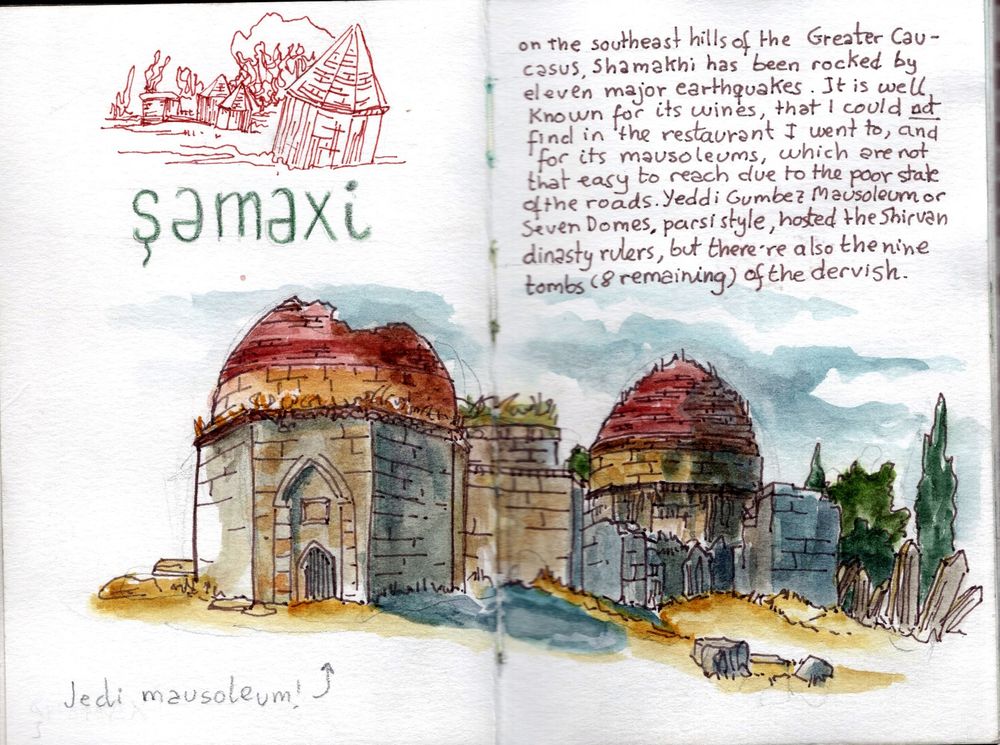 şəməxi
on the southeast hills of the Greater Cau-
casus, Shamakhi has been rocked by
eleven major earthquakes. It is well
known for its wines, that I could not
find in the restaurant I went to, and
for its mausoleums, which are not
that easy to reach due to the poor state
of the roads. Yeddi Gumbez Mausoleum or
Seven Domes, parsi style, hosted the Shirvan
dinasty rulers, but there're also the nine
tombs (8 remaining) of the dervish.
Jedi mausoleum!